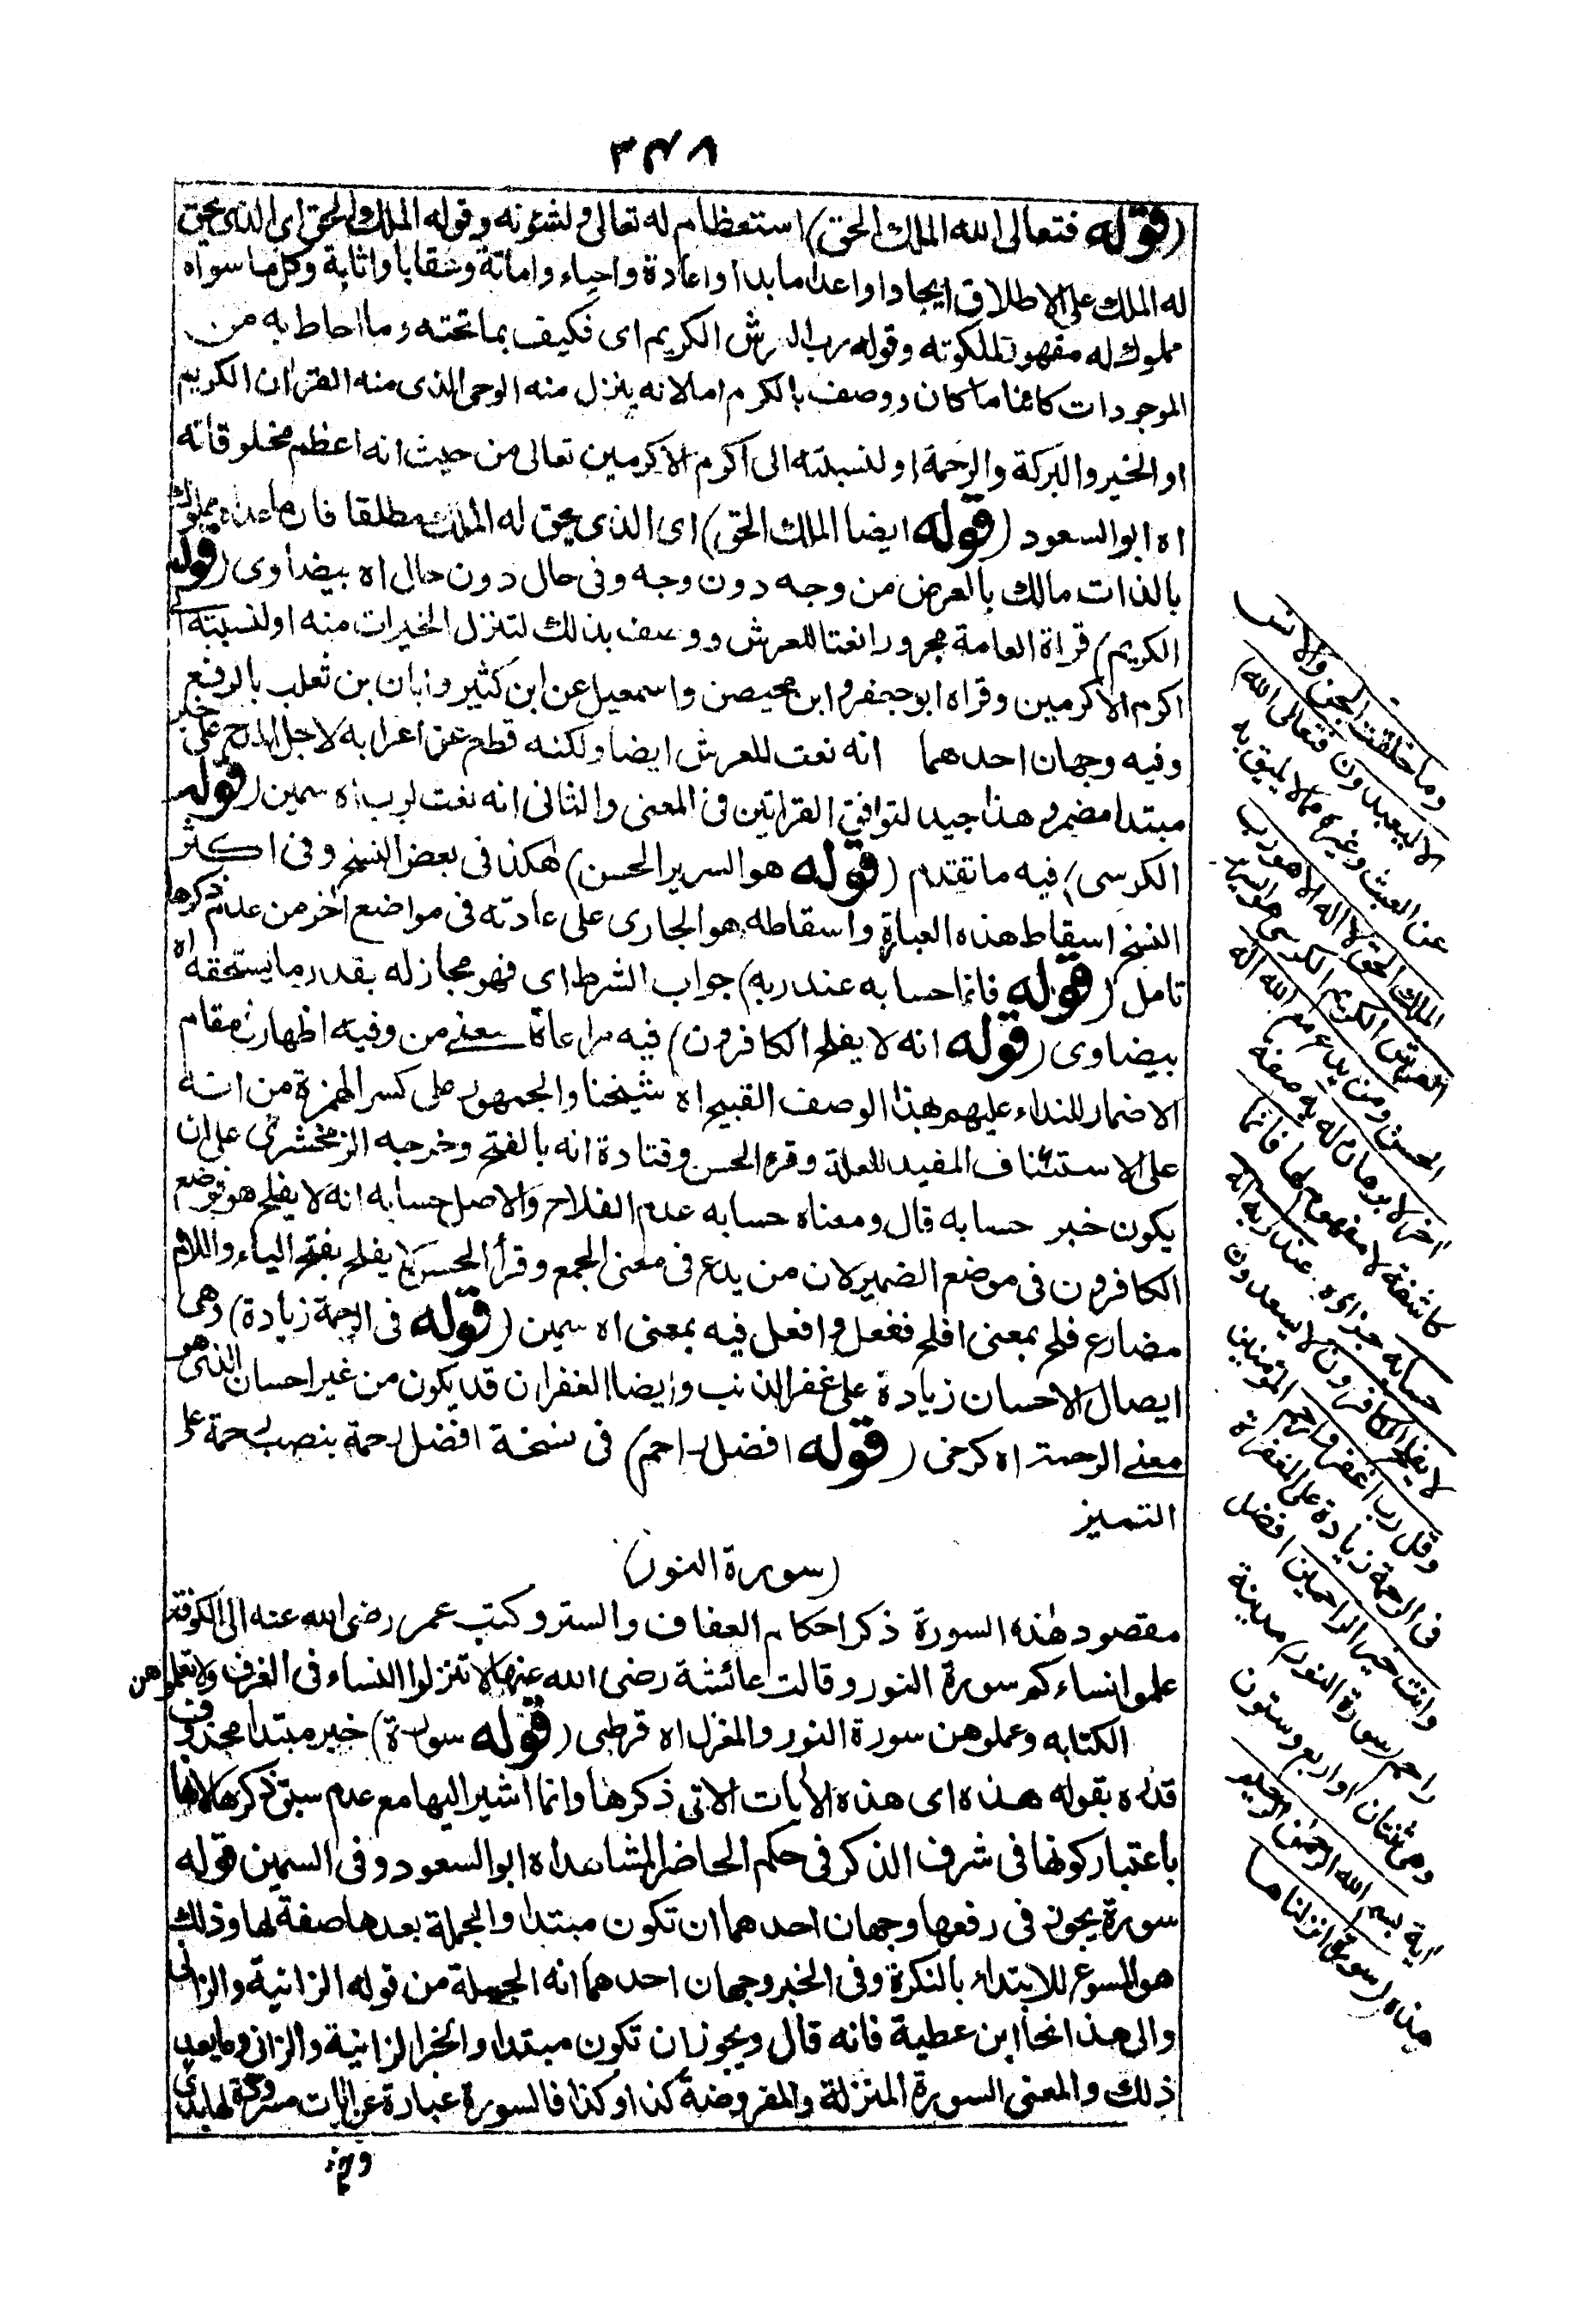 (قوله فتعالى الله الملك الحق) استعظام له تعالى ولشئونه وقوله الملك الحق اى الذى يحق
له الملك على الاطلاق ايجادا واعداما بدا واعادة واحياء واماتة وعقابا واثابة وكل ما سواه
مملوك له مقهور لملكوته وقوله رب العرش الكريم اى فكيف بما تحته وما احاط به من
الموجودات كائنا ما كان ووصف بالكرم اما لانه ينزل منه الوحى الذى منه القران الكريم
او الخير والبركة والرحمة او لنسبته الى اكرم الاكرمين تعالى من حيث انه اعظم مخلوقاته
اه ابو السعود (قوله ايضا الملك الحق) اى الذى يحق له الملك مطلقا فان ما عداه مملوك
بالذات مالك بالعرض من وجه دون وجه وفى حال دون حال اه بيضاوى (قوله
الكريم) قراة العامة مجرورا نعتا للعرش ووصف بذلك لتنزل الخيرات منه او لنسبته الى
اكرم الاكرمين وقراه ابو جعفر وابن محيصن واسمعيل عن ابن كثير وابان بن تعلب بالرفع
وفيه وجهان احدهما انه نعت للعرش ايضا ولكنه قطع عن اعرابه لاجل المدح على خبر
مبتدا مضمر وهذا جيد لتوافق القراتين فى المعنى والثانى انه نعت لرب اه سمين (قوله
الكرسى) فيه ما تقدم (قوله هو السرير الحسن) هكذا فى بعض النسخ وفى اكثر
النسخ اسقاط هذه العبارة واسقاطه هو الجارى على عادته فى مواضع اخر من عدم ذكرها
تامل (قوله فانما حسابه عند ربه) جواب الشرط اى فهو مجاز له بقدر ما يستحقه اه
بيضاوى (قوله انه لا يفلح الكافرون) فيه مراعاة معنى من وفيه اظهار فى مقام
الاضمار للنداء عليهم بهذا الوصف القبيح اه شيخنا والجمهور على كسر الهمزة من انه
على الاستئناف المفيد للعلة وقره الحسن وقتادة انه بالفتح وخرجه الزمخشرى على ان
يكون خبر حسابه قال ومعناه حسابه عدم الفلاح والاصل حسابه انه لا يفلح هو فوضع
الكافرون فى موضع الضمير لان من يدع فى معنى الجمع وقرأ الحسن لا يفلح بفتح الياء واللام
مضارع فلح بمعنى افلح ففعل وافعل فيه بمعنى اه سمين (قوله فى الرحمة زيادة) وهى
ايصال الاحسان زيادة على غفر الذنب وايضا الغفران قد يكون من غير احسان الذى هو
معنى الرحمة اه كرخى (قوله افضل راحم) فى نسخة افضل رحمة بنصب رحمة على
التمييز
(سورة النور)
مقصود هذه السورة ذكر احكام العفاف والستر وكتب عمر رضى الله عنه الى الكوفة
علموا نساءكم سورة النور وقالت عائشة رضى الله عنها لا تنزلوا النساء فى الغرف ولا تعلموهن
الكتابه وعلموهن سورة النور والمغزل اه قرطبى (قوله سورة) خبر مبتدا محذوف
قدره بقوله هذه اى هذه الأيات الاتى ذكرها وانما اشير اليها مع عدم سبق ذكرها لانها
باعتبار كونها فى شرف الذكر فى حكم الحاضر المشاهد اه ابو السعود وفى السمين قوله
سورة يجوز فى رفعها وجهان احدهما ان تكون مبتدا والجملة بعدها صفة لها وذلك
هو المسوغ للابتداء بالنكرة وفى الخبر وجهان احدهما انه الجملة من قوله الزانية والزانى
والى هذا نحا ابن عطية فانه قال ويجوز ان تكون مبتدا والخبر الزانية والزانى وما بعد
ذلك والمعنى السورة المنزلة والمفروضة كذا وكذا فالسورة عبارة عن ايات مسرودة لها بدى
وخ
وما خلقت الجن والانس
الا ليعبدون فتعالى الله)
عن العبث وغيره مما لا يليق به
الملك الحق لا اله الا هو رب
العرش الكريم الكرسى هو السرير
الحسن ومن يدع مع الله اله
اخر لا برهان له به صفة
كاشفة لا مفهوم لها فانما
حسابه جزاؤه عند ربه انه
لا يفلح الكافرون لا يسعدون
وقل رب اغفر وارحم المؤمنين
فى الرحمة زيادة على المغفرة
وانت خير الراحمين افضل
راحم (سورة النور) مدينة
وهى ثنتان او اربع وستون
آية بسم الله الرحمن الرحيم
هذه (سورة انزلناها